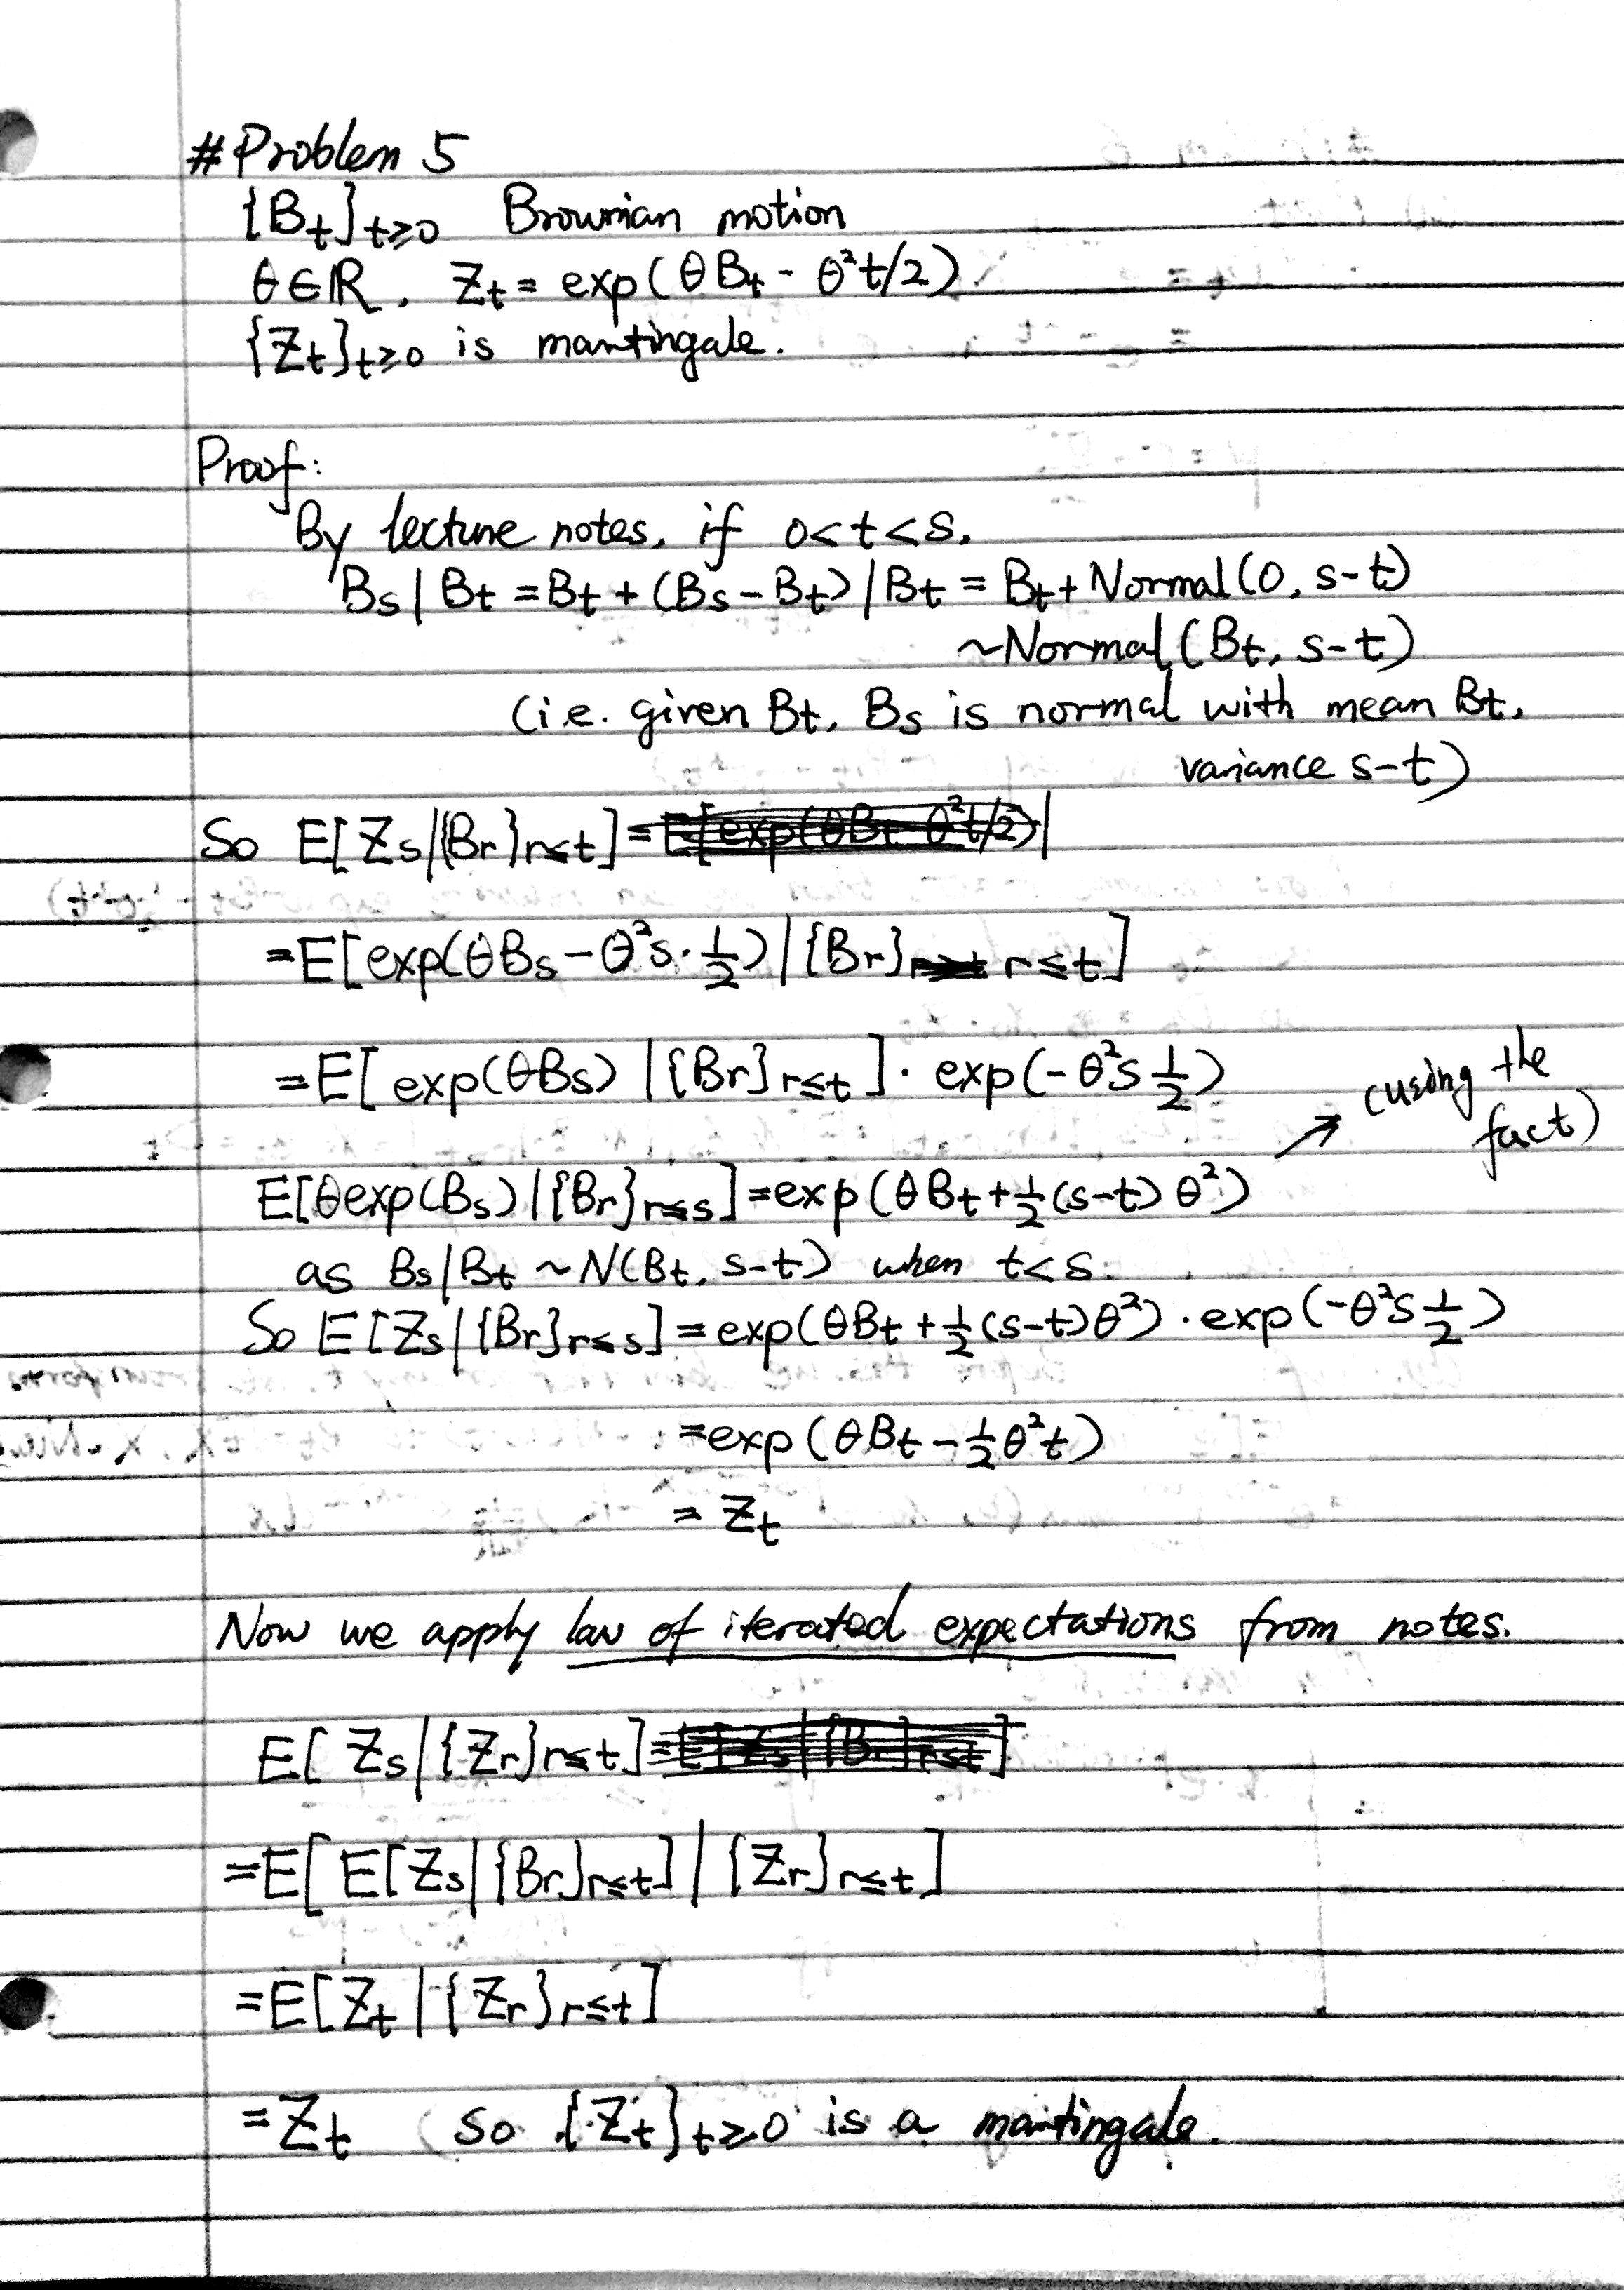 #Problem 5
{Bt}t≥0 Brownian motion
θ∈ℝ. Zt = exp(θBt - θ²t/2)
{Zt}t≥0 is martingale.
Proof:
By lecture notes, if 0<t<s,
Bs|Bt = Bt + (Bs-Bt)|Bt = Bt + Normal(0, s-t)
~Normal(Bt, s-t)
(i.e. given Bt, Bs is normal with mean Bt,
variance s-t)
So E[Zs|{Br}r≤t]
=E[exp(θBs - θ²s·1/2)|{Br} r≤t]
=E[exp(θBs) |{Br}r≤t]·exp(-θ²s 1/2)
(using the
fact)
E[θexp(Bs)|{Br}r≤s]=exp(θBt+1/2(s-t)θ²)
as Bs|Bt ~N(Bt, s-t) when t<s.
So E[Zs|{Br}r≤s] = exp(θBt+1/2(s-t)θ²)·exp(-θ²s 1/2)
=exp(θBt - 1/2θ²t)
= Zt
Now we apply law of iterated expectations from notes.
E[Zs|{Zr}r≤t]
=E[E[Zs|{Br}r≤t]|{Zr}r≤t]
=E[Zt|{Zr}r≤t]
=Zt so {Zt}t≥0 is a martingale.